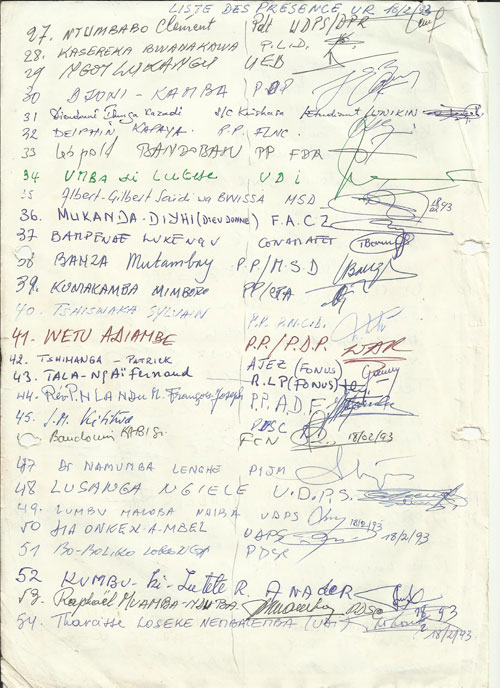 LISTE DES PRESENCE UR 18/2/93
27. NTUMBABO Clément Pdt UDPS/DPR
28. KASEREKA BWANAKAWA P.L.D.
29 NGOY LUKANGU UEB
30 DJONI - KAMBA PDP
31 Dieudonné Ilunga Kazadi S/C Kinshasa Etudiant UNIKIN
32 DELPHIN KAPAYA. P.P. FLNC.
33 Léopold BANDOBAN PP FDR
34 UMBA di LUTETE UDI
35 Albert-Gilbert Saidi wa BWISSA MSD 18/2/93
36. MUKANDA-DIYHI (DIEUDONNE) F.A.C.Z
37 BAMPENDE LUKENGU CONAMAFET
38 BANZA Mutambay P.P./M.S.D
39. KUMAKAMBA MIMBORO PP/
40. TSHISWAKA SYLVAIN P.P. P.N.C.D.
41. WETU ADIAMBE P.P./P.D.P.
42. TSHIMANGA - PATRICK AJEZ (FONUS)
43. TALA-NGAÏ Fernand R.LP (FONUS)
44. Rév. P. NLANDU M. François-Joseph P.P. A.D.F
45. J.M. Kititwa PDSC
Baudouin KABISI FCN 18/02/93
47 Dr NAMUMBA LENGHE P1JM
48 LUSANGA NGIELE U.D.P.S.
49. LUMBU MALOBA NAIBA UDPS 18/2/93
50 MBEL UDPS 18/2/93
51 BO-BOLIKO LOKONGA PDSC
52 KUMBU-ki-Lutete R. ANADER
53. Raphaël MUAMBA PDSC 18 2 93
54. Tharcisse LOSEKE NEMBALEMBA (UDI) 18/2/93